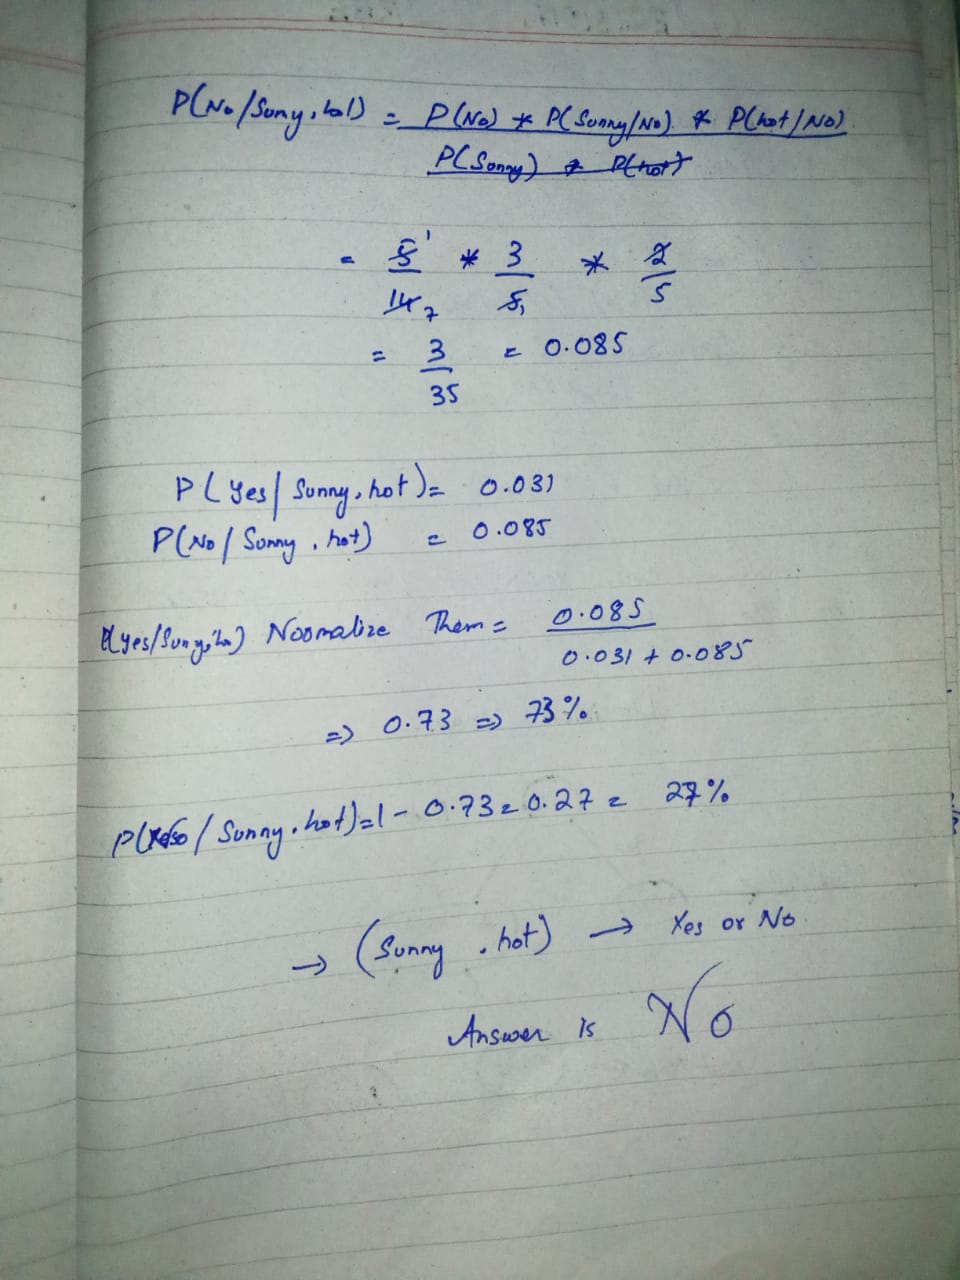 P(No/Sunny, hot) = P(No) * P(Sunny/No) * P(hot/No)
P(Sunny) * P(hot)
= 5 1 * 3 * 2
14 7 5 1 5
= 3 = 0.085
35
P(Yes/Sunny, hot) = 0.031
P(No/Sunny, hot) = 0.085
P(yes/Sunny, ho) Noomalize Them = 0.085
0.031 + 0.085
=> 0.73 => 73%
/Sunny, hot) = 1 - 0.73 = 0.27 = 27%
→ (Sunny, hot) → Yes or No
Answer is No